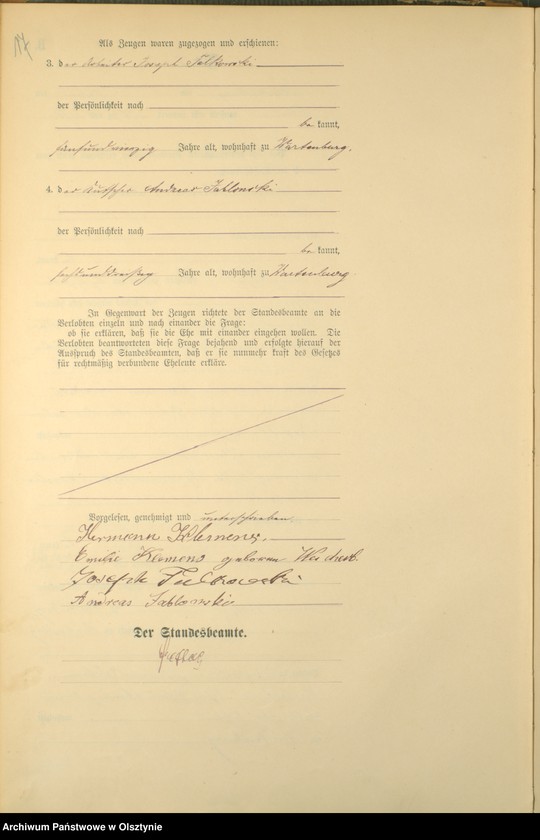 Als Zeugen waren zugezogen und erschienen:
3. der Arbeiter Joseph
der Persönlichkeit nach
be kannt,
fünfundzwanzig Jahre alt, wohnhaft zu Wartenburg.
4. der Kutscher Andreas Jablonski
der Persönlichkeit nach
be kannt,
sechsunddreißig Jahre alt, wohnhaft zu Wartenburg
In Gegenwart der Zeugen richtete der Standesbeamte an die
Verlobten einzeln und nach einander die Frage:
ob sie erklären, daß sie die Ehe mit einander eingehen wollen. Die
Verlobten beantworteten diese Frage bejahend und erfolgte hierauf der
Ausspruch des Standesbeamten, daß er sie nunmehr kraft des Gesetzes
für rechtmäßig verbundene Eheleute erkläre.
Vorgelesen, genehmigt und unterschrieben
Hermann Klemens.
Emilie Klemens geboren
Joseph
Andreas Jablonski
Der Standesbeamte.
Archiwum Państwowe w Olsztynie